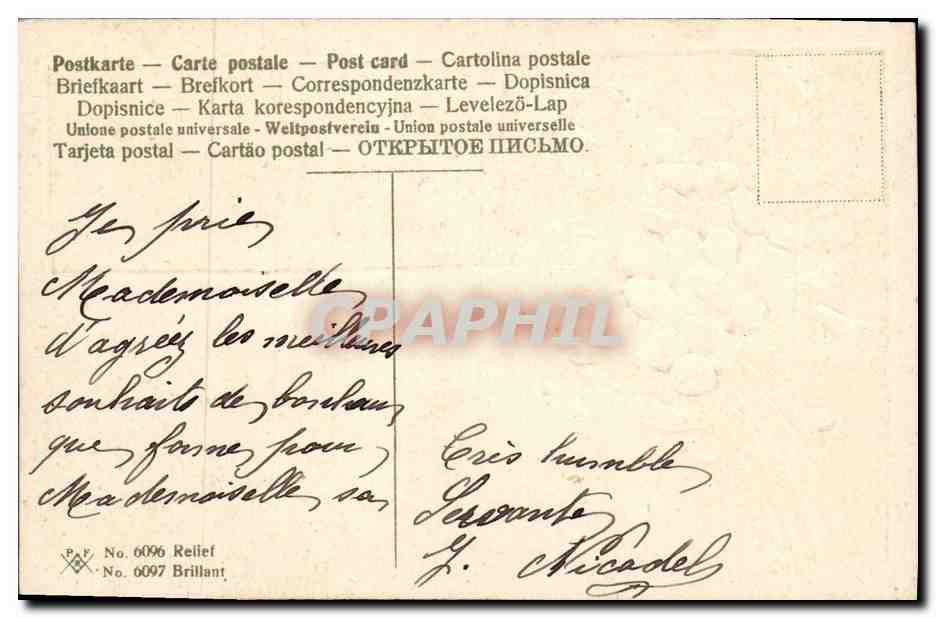 Postkarte — Carte postale — Post card — Cartolina postale
Briefkaart — Brefkort — Correspondenzkarte — Dopisnica
Dopisnice — Karta korespondencyjna — Levelezö-Lap
Unione postale universale - Weltpostverein - Union postale universelle
Tarjeta postal — Cartão postal — ОТКРЫТОЕ ПИСЬМО.
Je prie
Mademoiselle
d'agréez les meilleures
souhaits de bonheur
que forme pour
Mademoiselle sa
très humble
Servante
J. Nicodel
CPAPHIL
P F B
No. 6096 Relief
No. 6097 Brillant